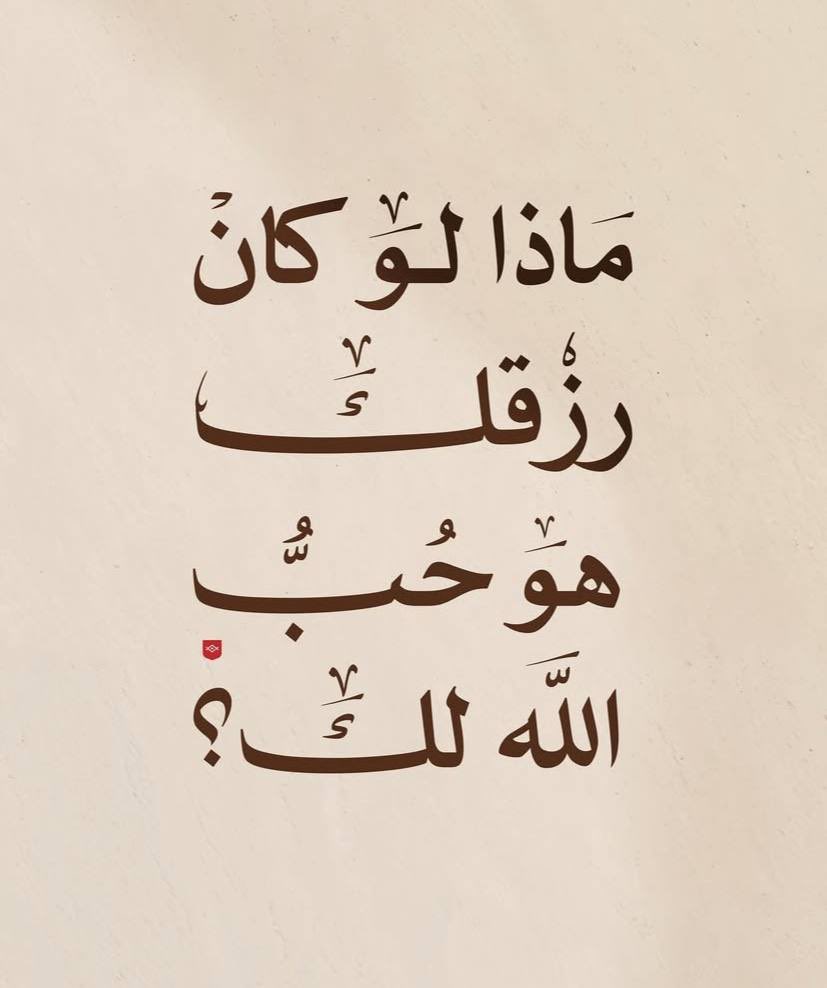 مَاذا لوَ كانْ
رزْقلكَ
هوَ حُبُّ
اللَّه للكَ؟